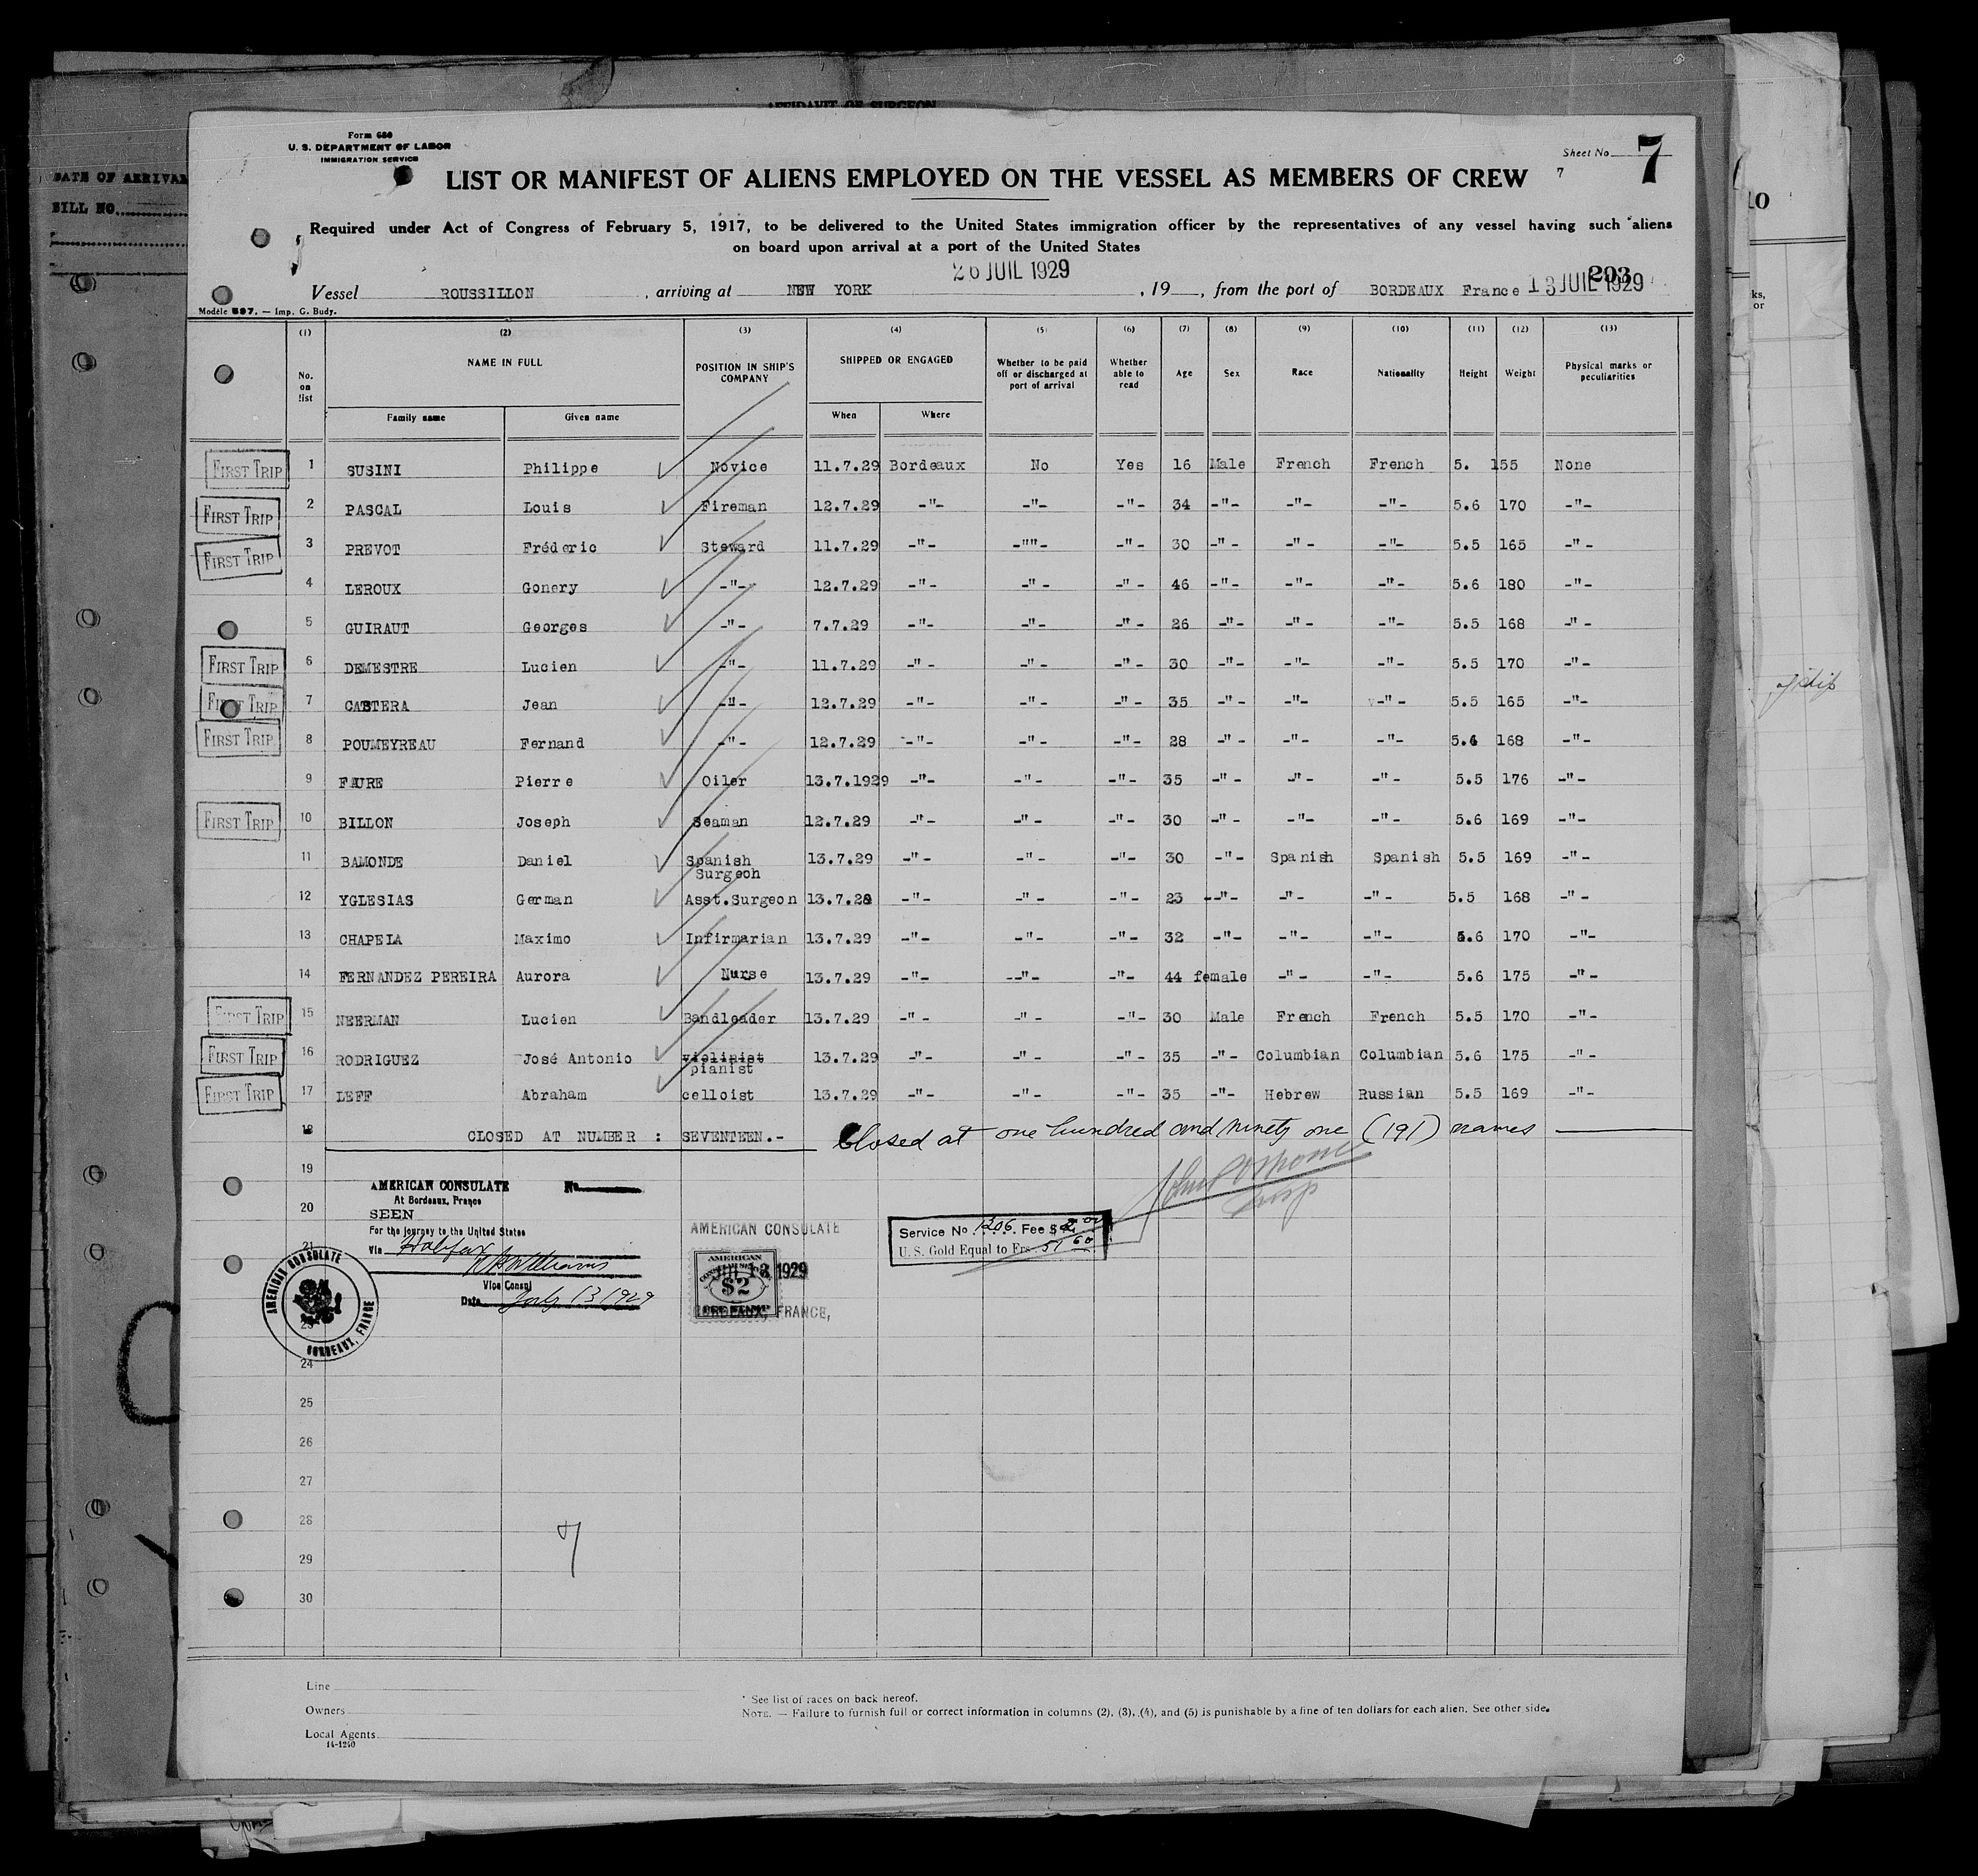 AFFIDAVIT OF SURGEON
DATE OF ARRIVAL
BILL NO.
Form 680
U. S. DEPARTMENT OF LABOR
IMMIGRATION SERVICE
Sheet No. 7
7
LIST OR MANIFEST OF ALIENS EMPLOYED ON THE VESSEL AS MEMBERS OF CREW
Required under Act of Congress of February 5, 1917, to be delivered to the United States immigration officer by the representatives of any vessel having such aliens
on board upon arrival at a port of the United States
26 JUIL 1929 203
Vessel ROUSSILLON , arriving at NEW YORK , 19 , from the port of BORDEAUX France 13 JUIL 1929
Modèle 597. — Imp. G. Budy.
(1) (2) (3) (4) (5) (6) (7) (8) (9) (10) (11) (12) (13)
No. on list NAME IN FULL POSITION IN SHIP'S COMPANY SHIPPED OR ENGAGED Whether to be paid off or discharged at port of arrival Whether able to read Age Sex Race Nationality Height Weight Physical marks or peculiarities
Family name Given name When Where
FIRST TRIP 1 SUSINI Philippe Novice 11.7.29 Bordeaux No Yes 16 Male French French 5. 155 None
FIRST TRIP 2 PASCAL Louis Fireman 12.7.29 -"- -"- -"- 34 -"- -"- -"- 5.6 170 -"-
FIRST TRIP 3 PREVOT Fréderic Steward 11.7.29 -"- -""- -"- 30 -"- -"- -"- 5.5 165 -"-
4 LEROUX Gonery -"- 12.7.29 -"- -"- -"- 46 -"- -"- -"- 5.6 180 -"-
5 GUIRAUT Georges -"- 7.7.29 -"- -"- -"- 26 -"- -"- -"- 5.5 168 -"-
FIRST TRIP 6 DEMESTRE Lucien -"- 11.7.29 -"- -"- -"- 30 -"- -"- -"- 5.5 170 -"-
FIRST TRIP 7 CASTERA Jean -"- 12.7.29 -"- -"- -"- 35 -"- -"- -"- 5.5 165 -"-
FIRST TRIP 8 POUMEYREAU Fernand -"- 12.7.29 -"- -"- -"- 28 -"- -"- -"- 5.4 168 -"-
9 FAURE Pierre Oiler 13.7.1929 -"- -"- -"- 35 -"- -"- -"- 5.5 176 -"-
FIRST TRIP 10 BILLON Joseph Seaman 12.7.29 -"- -"- -"- 30 -"- -"- -"- 5.6 169 -"-
11 BAMONDE Daniel Spanish Surgeon 13.7.29 -"- -"- -"- 30 -"- Spanish Spanish 5.5 169 -"-
12 YGLESIAS German Asst.Surgeon 13.7.29 -"- -"- -"- 23 --"- -"- -"- 5.5 168 -"-
13 CHAPELA Maximo Infirmarian 13.7.29 -"- -"- -"- 32 -"- -"- -"- 5.6 170 -"-
14 FERNANDEZ PEREIRA Aurora Nurse 13.7.29 -"- --"- -"- 44 female -"- -"- 5.6 175 -"-
FIRST TRIP 15 NEERMAN Lucien Bandleader 13.7.29 -"- -"- -"- 30 Male French French 5.5 170 -"-
FIRST TRIP 16 RODRIGUEZ José Antonio violinist pianist 13.7.29 -"- -"- -"- 35 -"- Columbian Columbian 5.6 175 -"-
FIRST TRIP 17 LEFF Abraham celloist 13.7.29 -"- -"- -"- 35 -"- Hebrew Russian 5.5 169 -"-
18 CLOSED AT NUMBER : SEVENTEEN.- Closed at one hundred and ninety one (191) names
19
AMERICAN CONSULATE No.
At Bordeaux, France
20
SEEN
For the journey to the United States
21
Via Halifax
Vice Consul
Date July 13 1929
AMERICAN CONSULATE BORDEAUX, FRANCE
AMERICAN CONSULATE
JUL 13 1929
AMERICAN
$2
BORDEAUX, FRANCE,
Service No 1206. Fee $2.00
U. S. Gold Equal to Frs. 51 60
Insp
24
25
26
27
28
29
30
7
Line
Owners
Local Agents
14-1240
* See list of races on back hereof.
NOTE. — Failure to furnish full or correct information in columns (2), (3), (4), and (5) is punishable by a fine of ten dollars for each alien. See other side.